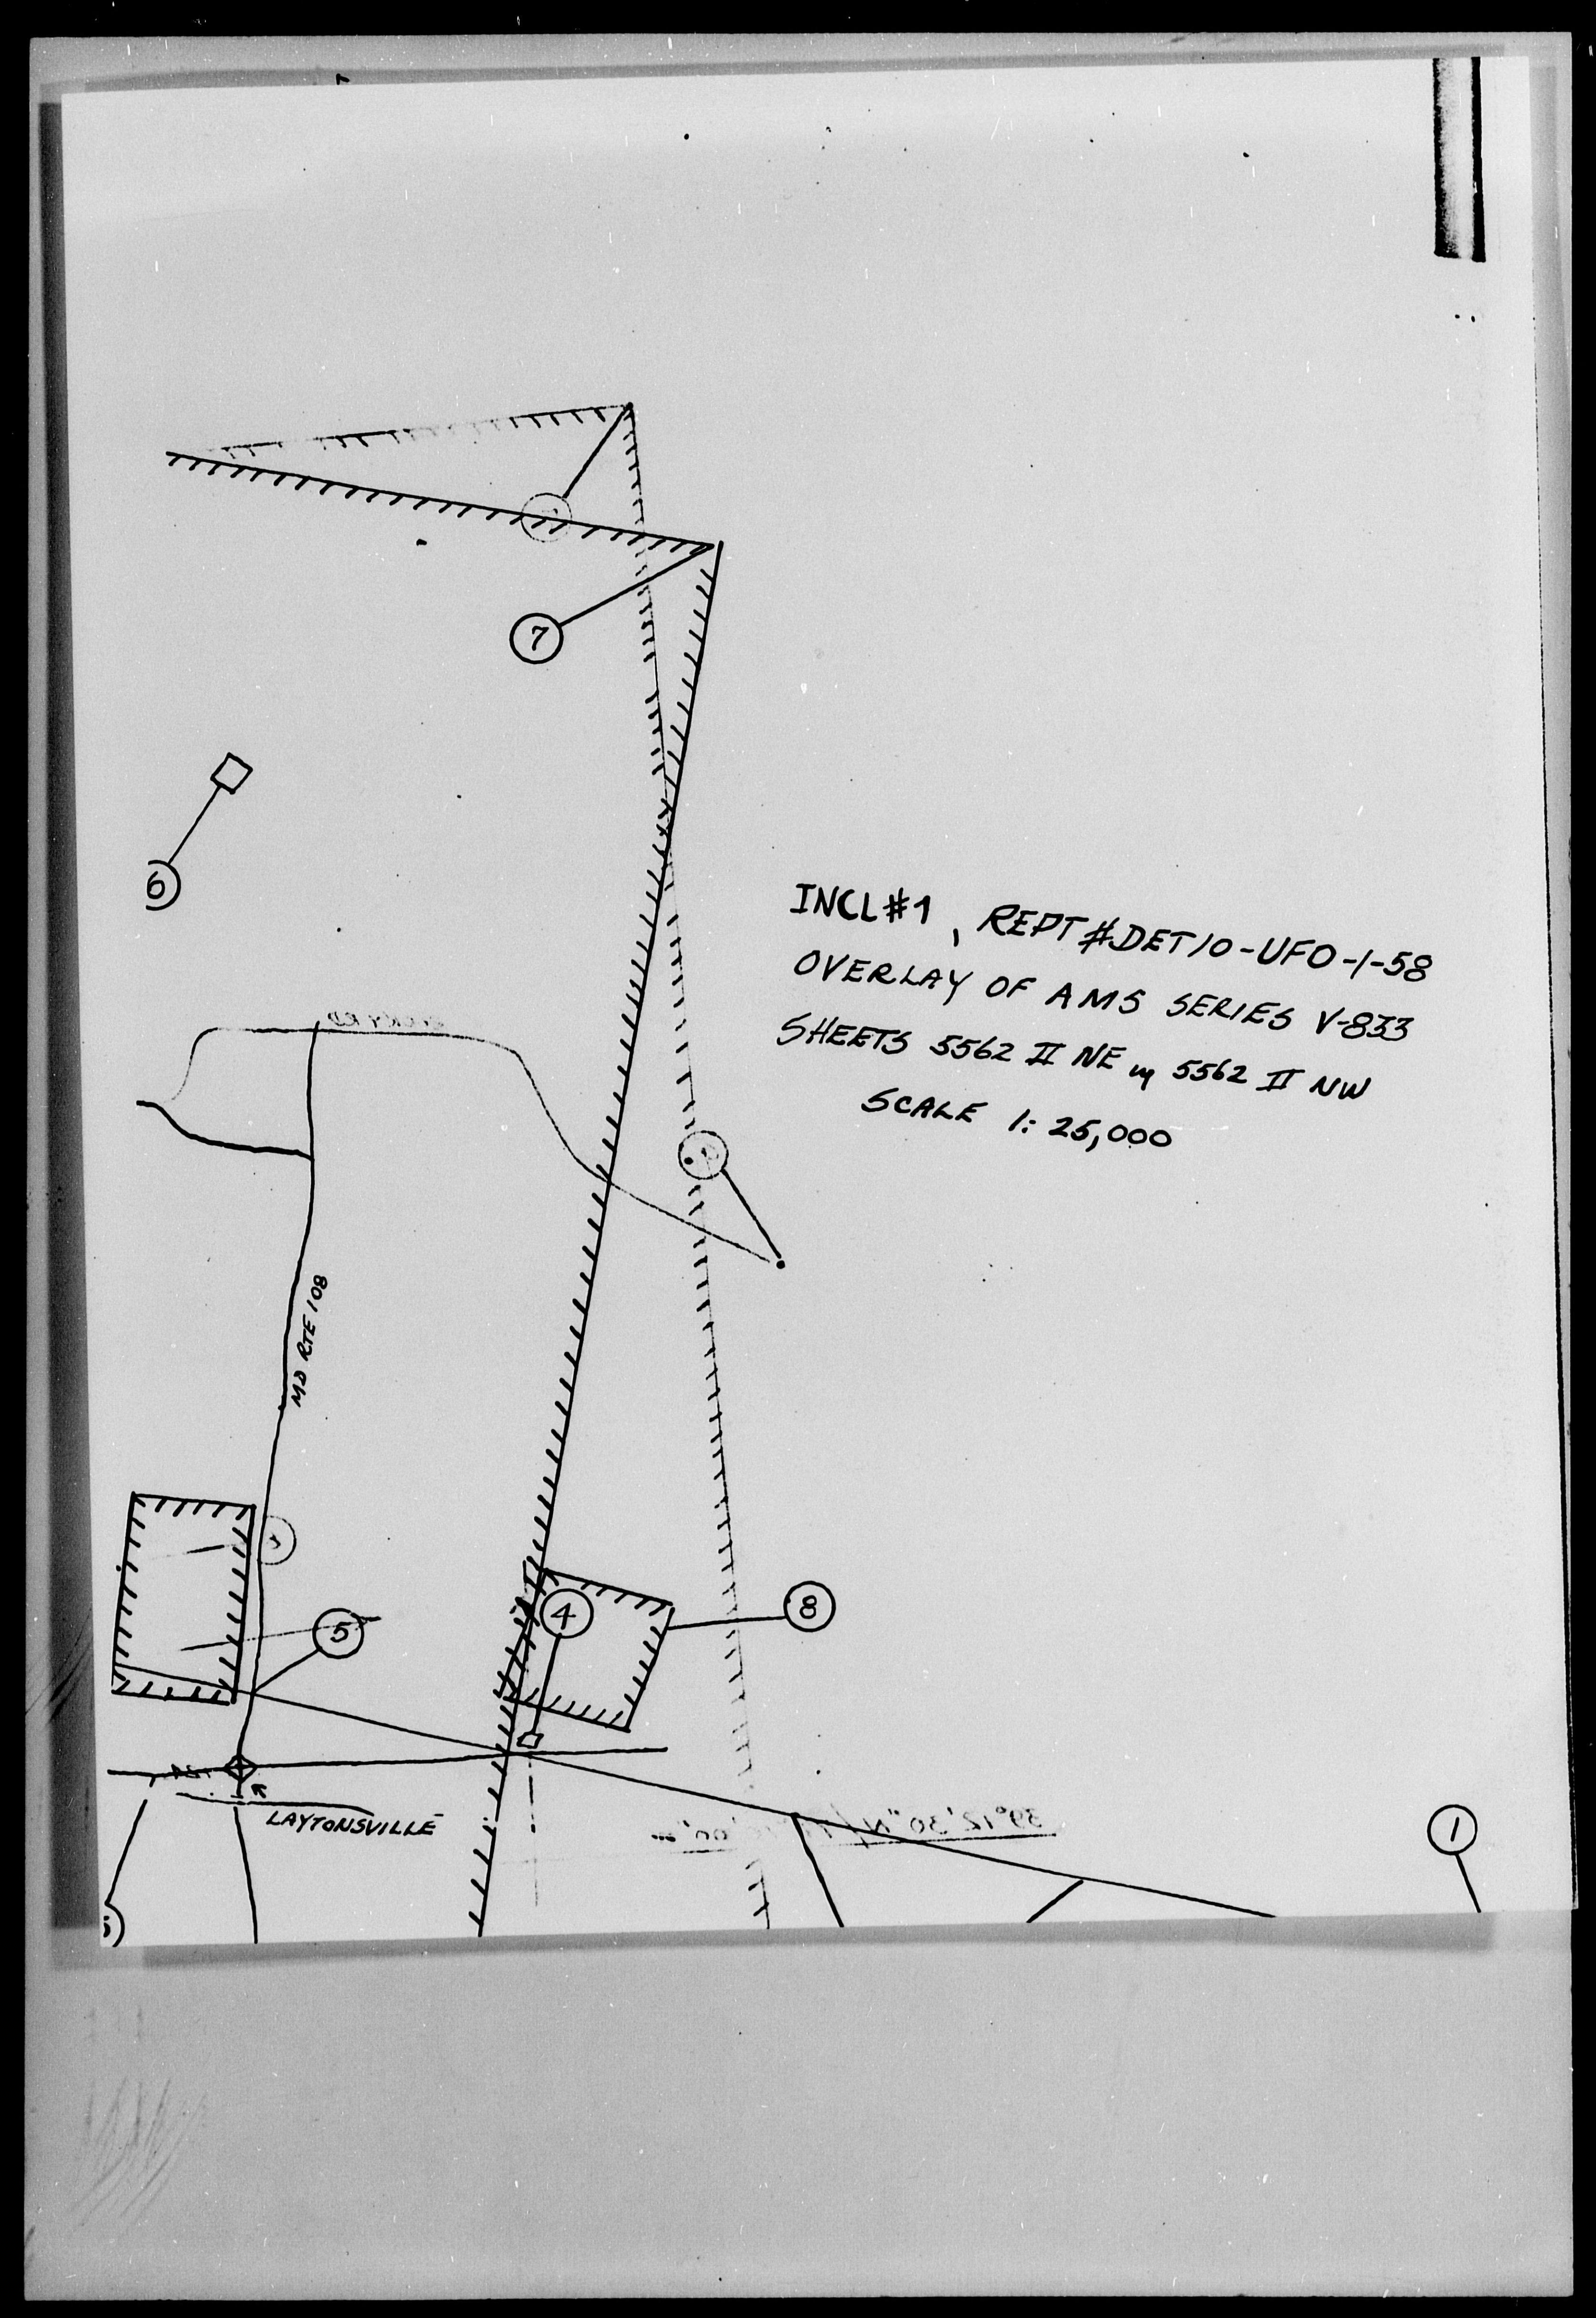 7
6
INCL#1, REPT #DET10-UFO-1-58
OVERLAY OF AMS SERIES V-833
SHEETS 5562 II NE & 5562 II NW
SCALE 1:25,000
MD RTE 108
4
8
5
LAYTONSVILLE
39°12'30"N/
1